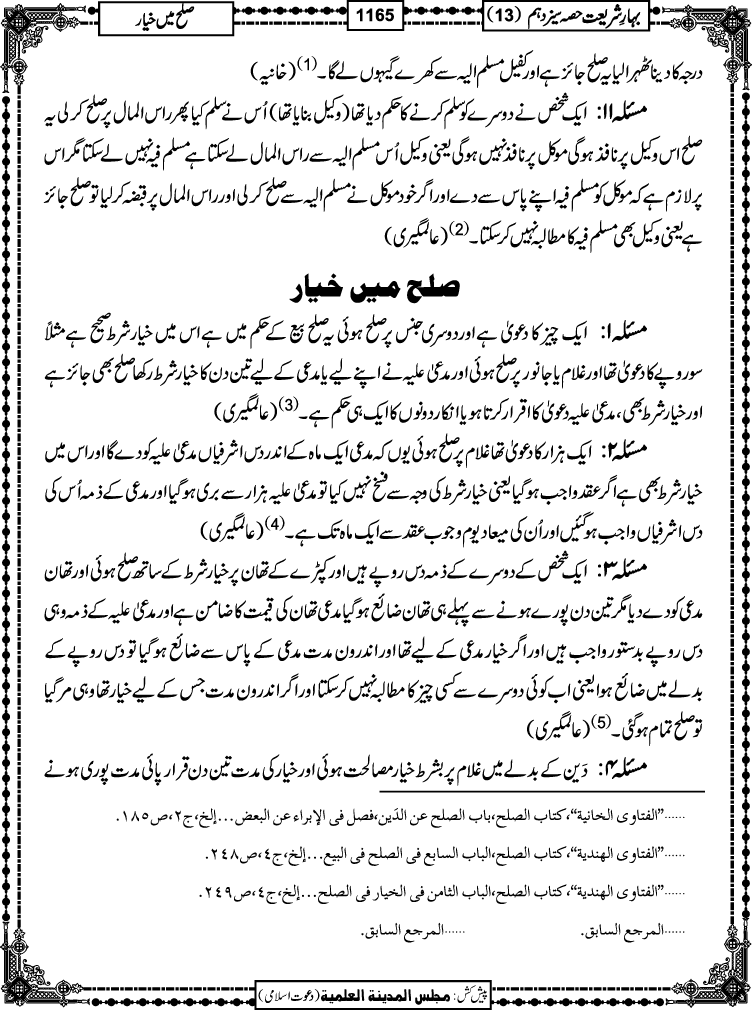 بہارِ شریعت حصہ سیزدہم (13)
1165
صلح میں خیار
درجہ کا دینا ٹھہرا لیا یہ صلح جائز ہے اور کفیل مسلم الیہ سے کھرے گیہوں لے گا۔(1) (خانیہ)
مسئلہ۱۱: ایک شخص نے دوسرے کو سلم کرنے کا حکم دیا تھا (وکیل بنایا تھا) اُس نے سلم کیا پھر راس المال پر صلح کر لی یہ
صلح اس وکیل پر نافذ ہوگی موکل پر نافذ نہیں ہوگی یعنی وکیل اُس مسلم الیہ سے راس المال لے سکتا ہے مسلم فیہ نہیں لے سکتا مگر اس
پر لازم ہے کہ موکل کو مسلم فیہ اپنے پاس سے دے اور اگر خود موکل نے مسلم الیہ سے صلح کر لی اور راس المال پر قبضہ کر لیا تو صلح جائز
ہے یعنی وکیل بھی مسلم فیہ کا مطالبہ نہیں کر سکتا۔(2) (عالمگیری)
صلح میں خیار
مسئلہ۱: ایک چیز کا دعویٰ ہے اور دوسری جنس پر صلح ہوئی یہ صلح بیع کے حکم میں ہے اس میں خیار شرط صحیح ہے مثلاً
سو روپے کا دعویٰ تھا اور غلام یا جانور پر صلح ہوئی اور مدعیٰ علیہ نے اپنے لیے یا مدعی کے لیے تین دن کا خیار شرط رکھا صلح بھی جائز ہے
اور خیار شرط بھی، مدعیٰ علیہ دعویٰ کا اقرار کرتا ہو یا انکار دونوں کا ایک ہی حکم ہے۔(3) (عالمگیری)
مسئلہ۲: ایک ہزار کا دعویٰ تھا غلام پر صلح ہوئی یوں کہ مدعی ایک ماہ کے اندر دس اشرفیاں مدعیٰ علیہ کو دے گا اور اس میں
خیار شرط بھی ہے اگر عقد واجب ہوگیا یعنی خیار شرط کی وجہ سے فسخ نہیں کیا تو مدعیٰ علیہ ہزار سے بری ہوگیا اور مدعی کے ذمہ اُس کی
دس اشرفیاں واجب ہوگئیں اور اُن کی میعاد یوم وجوب عقد سے ایک ماہ تک ہے۔(4) (عالمگیری)
مسئلہ۳: ایک شخص کے دوسرے کے ذمہ دس روپے ہیں اور کپڑے کے تھان پر خیار شرط کے ساتھ صلح ہوئی اور تھان
مدعی کو دے دیا مگر تین دن پورے ہونے سے پہلے ہی تھان ضائع ہوگیا مدعی تھان کی قیمت کا ضامن ہے اور مدعیٰ علیہ کے ذمہ وہی
دس روپے بدستور واجب ہیں اور اگر خیار مدعی کے لیے تھا اور اندرون مدت مدعی کے پاس سے ضائع ہوگیا تو دس روپے کے
بدلے میں ضائع ہوا یعنی اب کوئی دوسرے سے کسی چیز کا مطالبہ نہیں کر سکتا اور اگر اندرون مدت جس کے لیے خیار تھا وہی مر گیا
تو صلح تمام ہوگئی۔(5) (عالمگیری)
مسئلہ۴: دَین کے بدلے میں غلام پر بشرط خیار مصالحت ہوئی اور خیار کی مدت تین دن قرار پائی مدت پوری ہونے
......”الفتاوى الخانية“، كتاب الصلح، باب الصلح عن الدَين، فصل فى الإبراء عن البعض...إلخ، ج٢، ص١٨٥.
......”الفتاوى الهندية“، كتاب الصلح، الباب السابع فى الصلح فى البيع...إلخ، ج٤، ص٢٤٨.
......”الفتاوى الهندية“، كتاب الصلح، الباب الثامن فى الخيار فى الصلح...إلخ، ج٤، ص٢٤٩.
......المرجع السابق. ......المرجع السابق.
پیش کش: مجلس المدینۃ العلمیۃ (دعوت اسلامی)